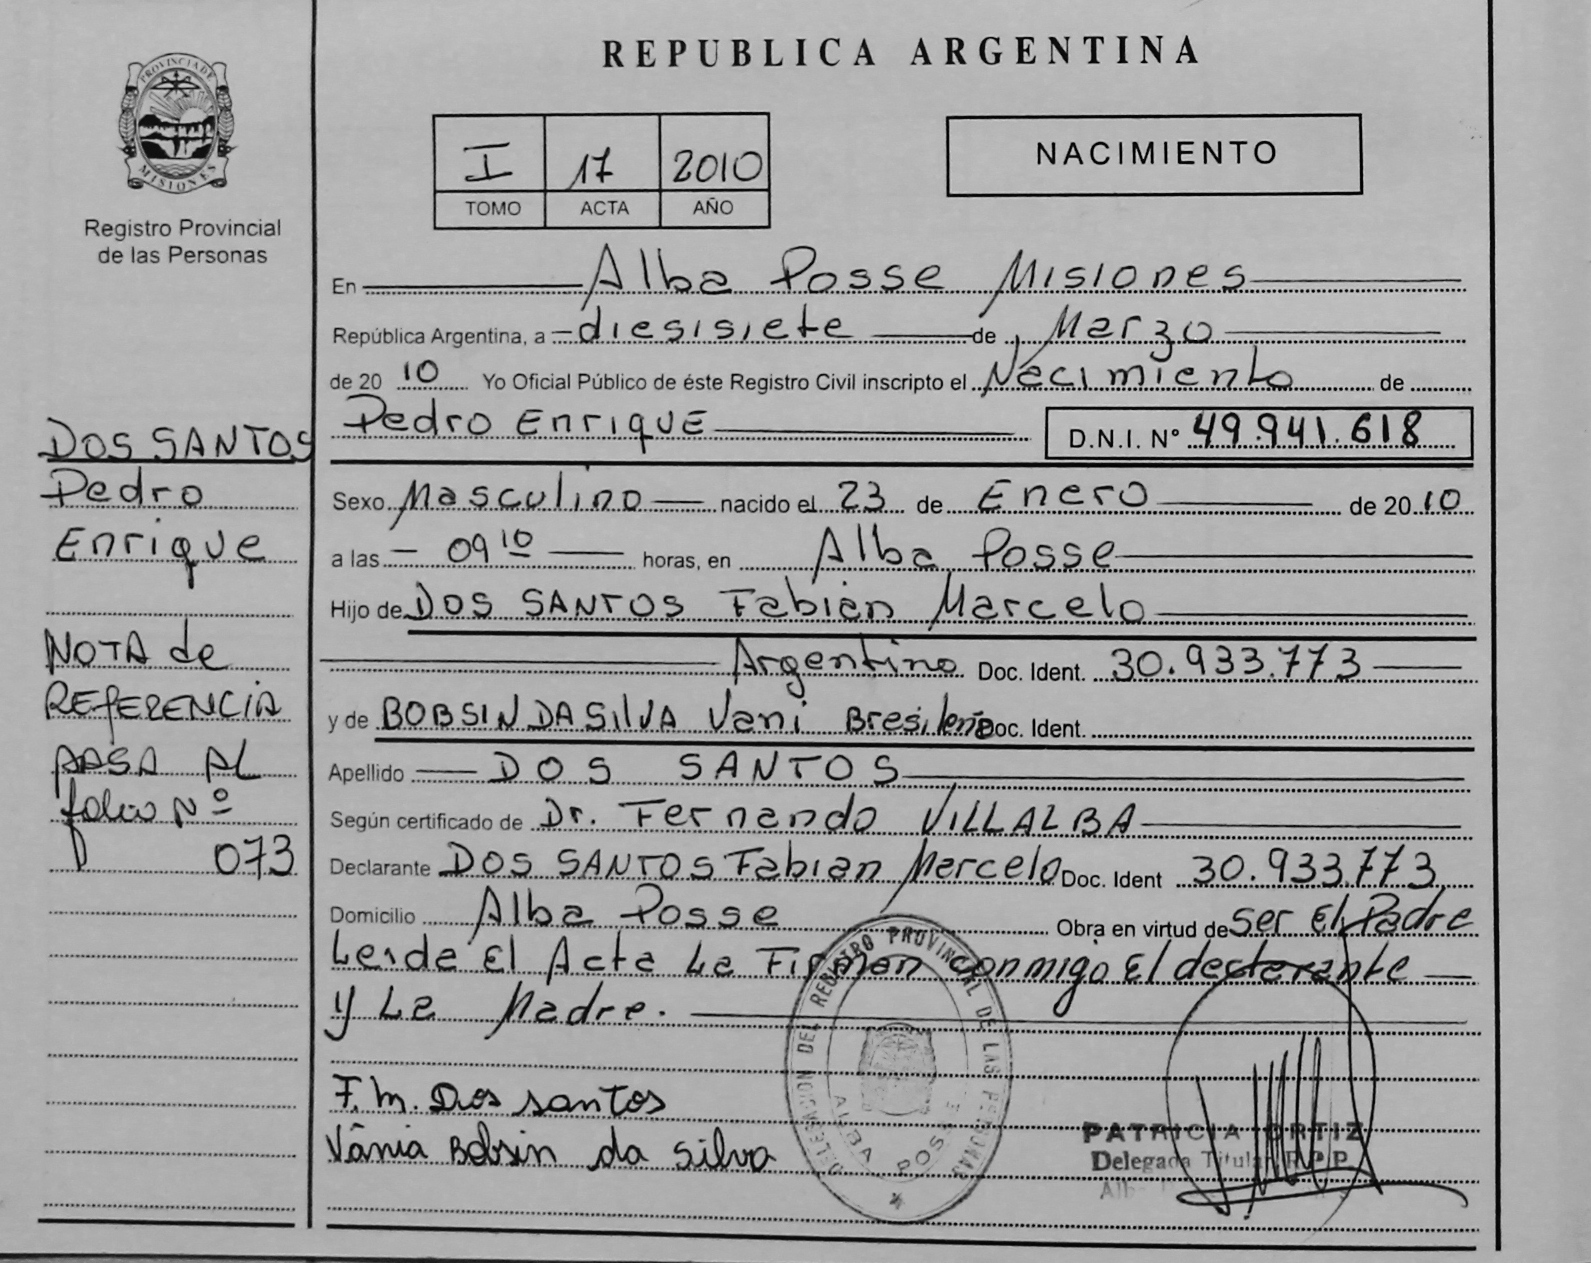 REPUBLICA ARGENTINA
PROVINCIA DE MISIONES
Registro Provincial
de las Personas
I 17 2010
TOMO ACTA AÑO
NACIMIENTO
En Alba Posse Misiones
República Argentina, a diesisiete de Marzo
de 2010 Yo Oficial Público de éste Registro Civil inscripto el Nacimiento de
Pedro Enrique D.N.I. N° 49.941.618
Sexo Masculino nacido el 23 de Enero de 2010
a las 09 10 horas, en Alba Posse
Hijo de DOS SANTOS Fabian Marcelo
Argentino Doc. Ident. 30.933.773
y de BOBSIN DA SILVA Vani Brasileña Doc. Ident.
Apellido DOS SANTOS
Según certificado de Dr. Fernando VILLALBA
Declarante DOS SANTOS Fabian Marcelo Doc. Ident 30.933.773
Domicilio Alba Posse Obra en virtud de ser El Padre
Leida El Acta La Firman conmigo El declarante
y La Madre.
F. M. Dos santos
Vânia Bobsin da Silva
DOS SANTOS
Pedro
Enrique
NOTA de
REFERENCIA
PASA AL
folio Nº
073
DELEGACION DEL REGISTRO PROVINCIAL DE LAS PERSONAS
ALBA POSSE
PATRICIA ORTIZ
Delegada Titular R.P.P.